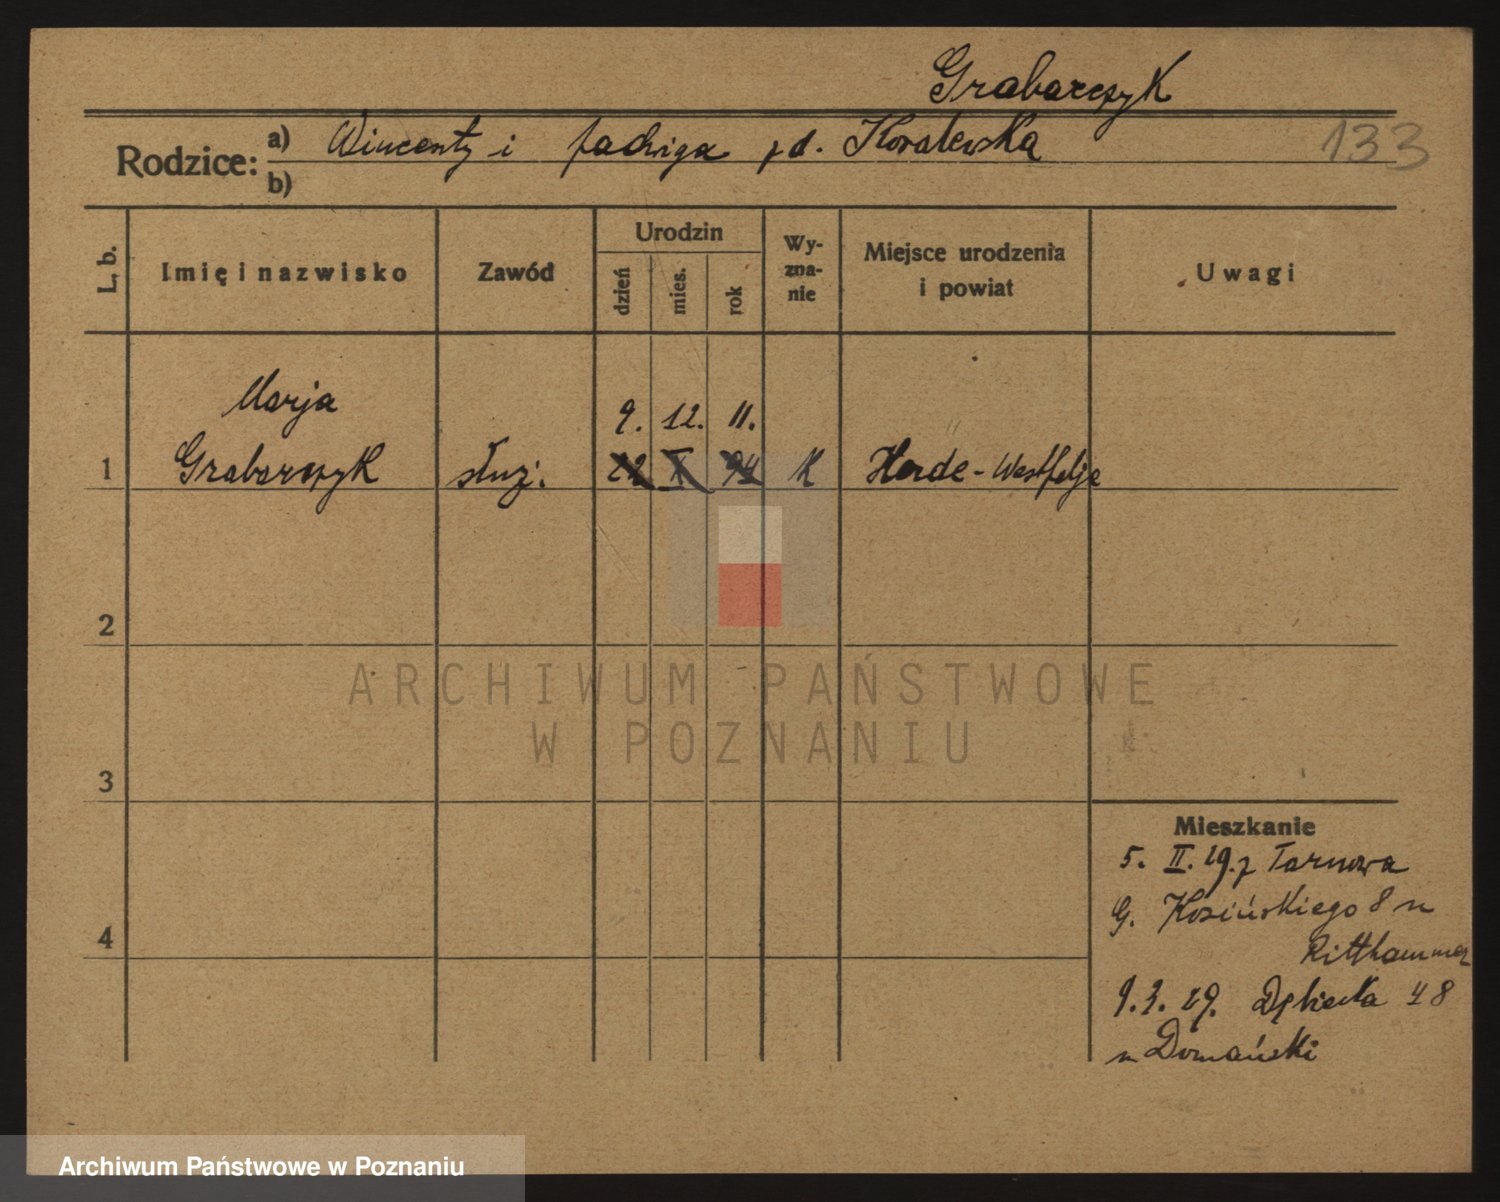 Grabarczyk
133
Rodzice: a) Wincenty i Jadwiga z d. Kowalewska
b)
L. b. Imię i nazwisko Zawód Urodzin dzień mies. rok Wy-zna-nie Miejsce urodzenia i powiat Uwagi
Marja 9. 12. 11.
1 Grabarczyk służ. 22 X 94 K Herde - Westfalje
2
ARCHIWUM PAŃSTWOWE
W POZNANIU
3
Mieszkanie
5. II. 29. z Tarnowa
G. Kosińskiego 8 n
4
Ritthammer
9. 3. 29. Dębiecka 48
n Domański
Archiwum Państwowe w Poznaniu